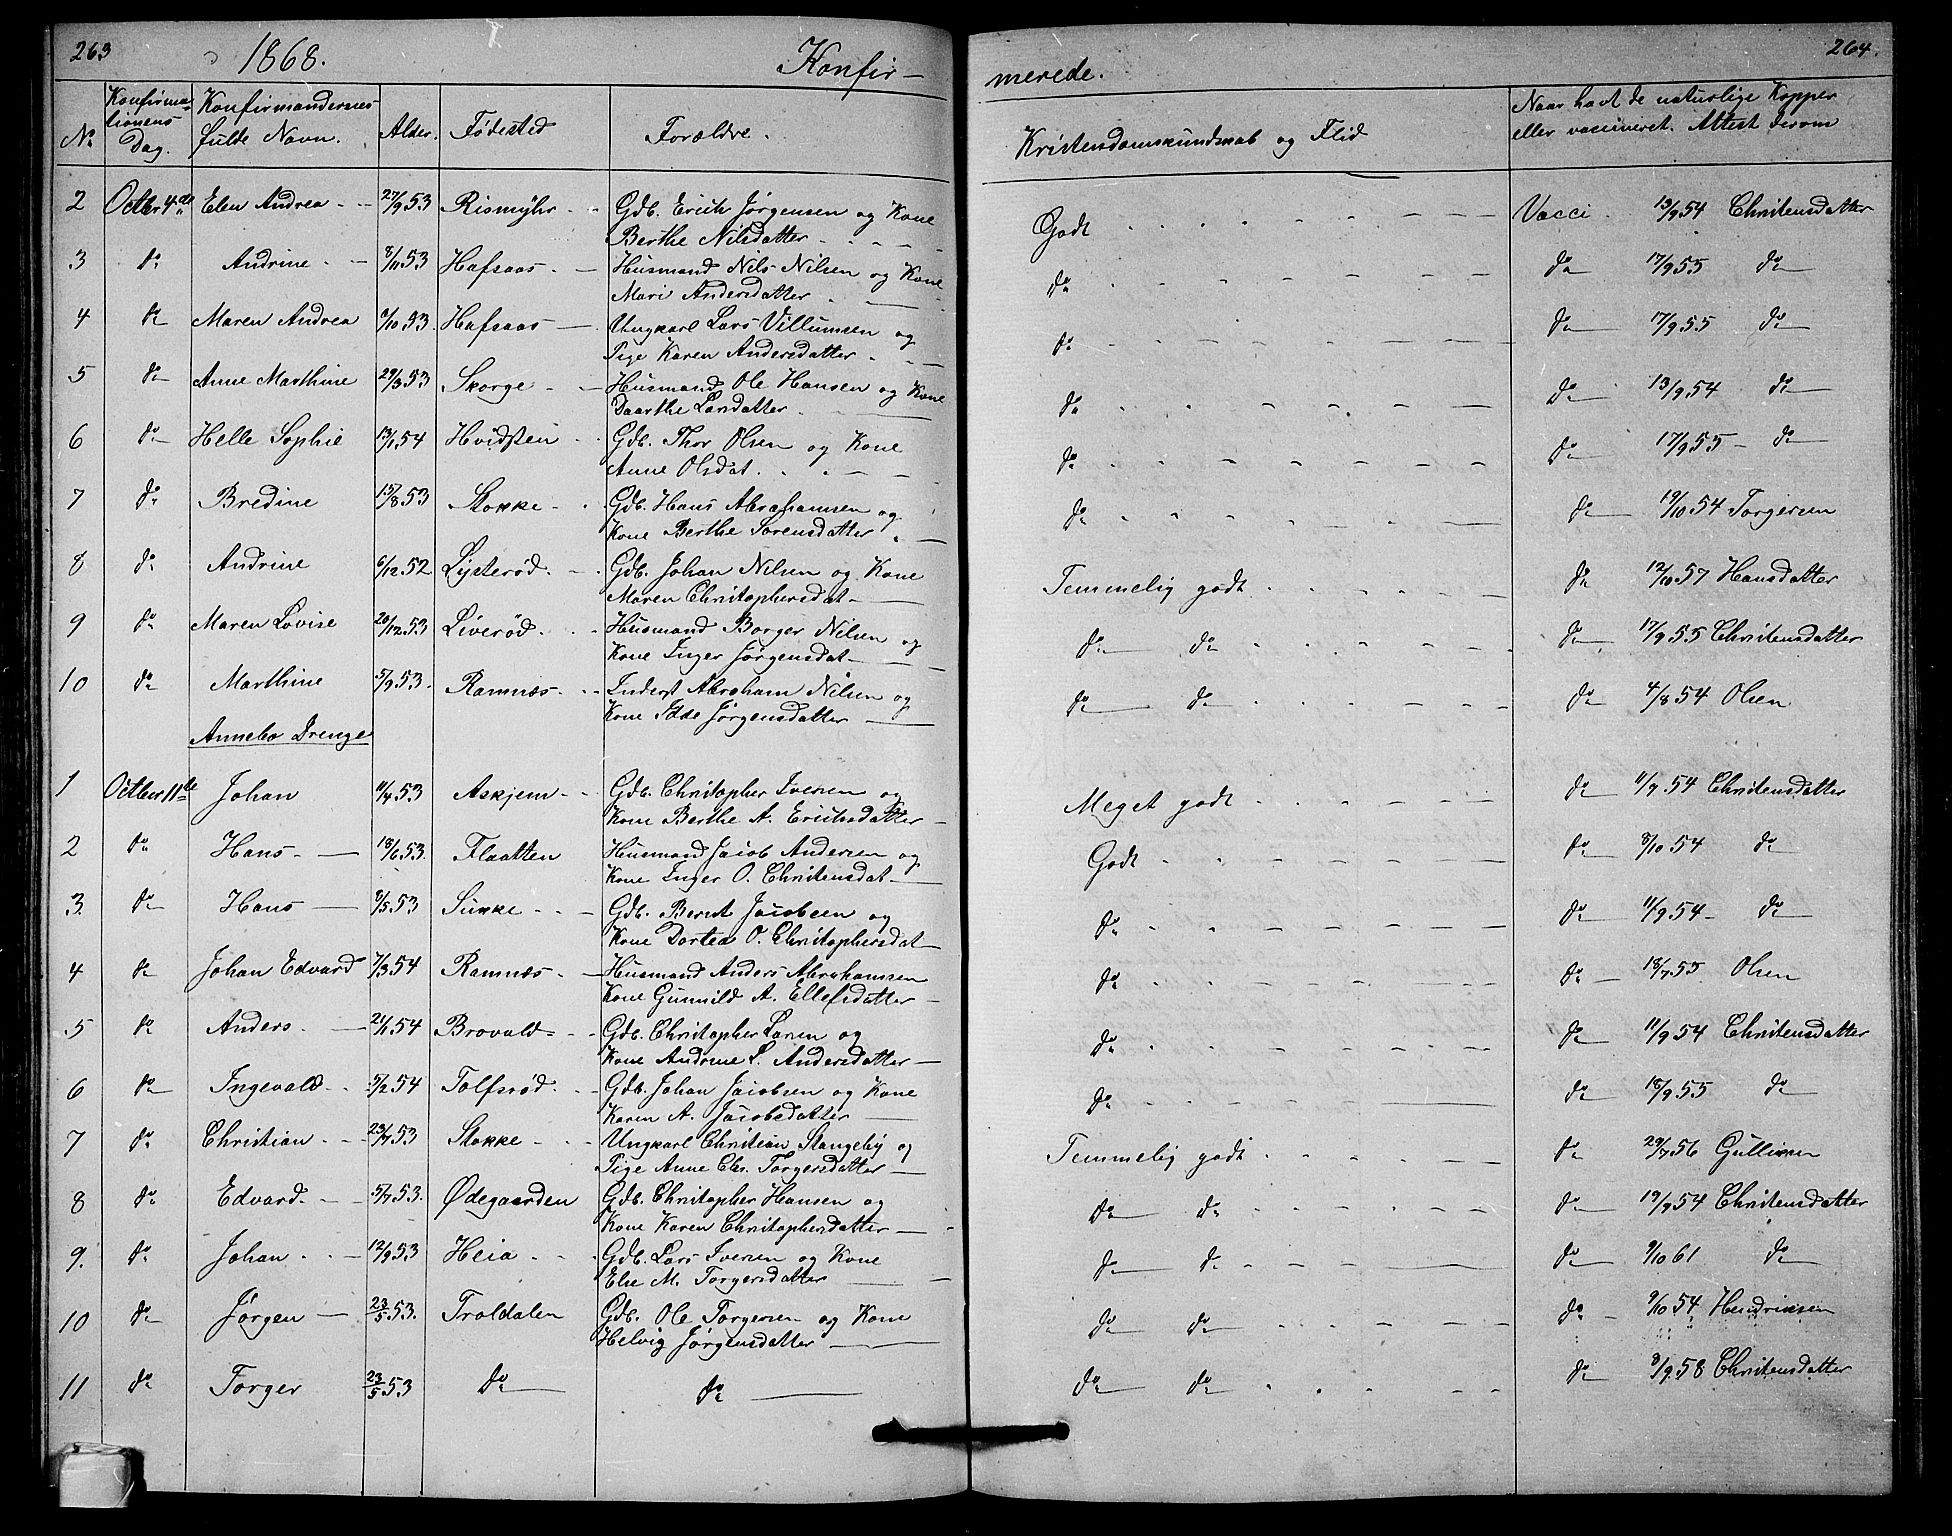 263 1868. Konfir-
merede. 264.
No Konfirmationens Dag. Konfirmandernes fulde Navn. Alder. Fødested Forældre. Kristendomskundskab og Flid Naar havt de naturlige Kopper eller vaccineret. Attest derom
2 Octber 4de Elen Andrea 27/9 53 Rismyhr Gdb. Erich Jørgensen og Kone Godt Vacci. 13/9 54 Christensdatter
Berthe Nilsdatter
3 do Andrine 8/11 53 Hafsaas Husmand Nils Nilsen og Kone do do 17/9 55 do
Mari Andersdatter
4 do Maren Andrea /10 53 Hafsaas Ungkarl Lars Villumsen og do do 17/9 55 do
Pige Karen Andersdatter
5 do Anne Marthine 29/3 53 Skorge Husmand Ole Hansen og Kone do do 13/9 54 do
Daarthe Larsdatter
6 do Helle Sophie 13/1 54 Hvidsten Gdb. Thor Olsen og Kone do do 17/9 55 do
Anne Olsdat.
7 do Bredine 15/8 53 Stokke Gdb. Hans Abrahamsen og do do 19/10 54 Torgersen
Kone Berthe Sørensdatter
8 do Andrine 6/12 52 Lysterød Gdb. Johan Nilsen og Kone Temmelig godt do 12/10 57 Hansdatter
Maren Christophersdat
9 do Maren Lovise 20/12 53 Liverød Husmand Borger Nilsen og do do do 17/9 55 Christensdatter
Kone Inger Jørgensdat
10 do Marthine 5/9 53 Ramnæs Inderst Abraham Nilsen og do do do 4/8 54 Olsen
Kone Idde Jørgensdatter
Annebo Drenge
1 Octber 11te Johan 11/4 53 Askjem Gdb. Christopher Iversen og Meget godt do 11/9 54 Christensdatter
Kone Berthe A. Erichsdatter
2 do Hans 18/6 53 Flaatten Husmand Jacob Andersen og Godt do 8/10 54 do
Kone Inger O. Christensdat
3. do Hans 8/5 53 Sukke Gdb. Bernt Jacobsen og do do 11/9 54 do
Kone Dortea O. Christophersdat
4 do Johan Edvard 7/3 54 Ramnæs Husmand Anders Abrahamsen do do 18/7 55 Olsen
Kone Gunnild A. Ellefsdatter
5 do Anders 21/1 54 Brovald Gdb. Christopher Larsen og do do 11/9 54 Christensdatter
Kone Andrine L. Andersdatter
6 do Ingevald 5/2 54 Tolfsrød Gdb. Johan Jacobsen og Kone do do 18/9 55 do
Karen A. Jacobsdatter
7 do Christian 23/7 53 Stokke Ungkarl Christian Stangeby og Temmelig godt do 29/7 56 Gulliksen
Pige Anne Chr. Torgersdatter
8 do Edvard 5/7 53 Ødegaarden Gdb. Christopher Hansen og do do do 19/9 54 Christensdatter
Kone Karen Christophersdatter
9. do Johan 12/9 53 Heia Gdb. Lars Iversen og Kone do do do 9/10 61 do
Else M. Torgersdatter
10 do Jørgen 23/5 53 Troldalen Gdb. Ole Torgersen og Kone do do do 9/10 54 Hendriksen
Helvig Jørgensdatter
11 do Torger 23/5 53 do do do do do 8/9 58 Christensdatter